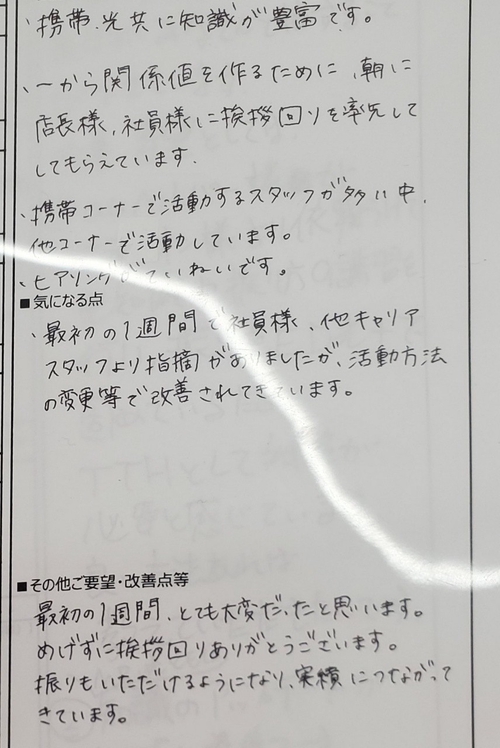 ・携帯、光共に知識が豊富です。
・一から関係値を作るために、朝に
店長様、社員様に挨拶回りを率先して
してもらえています.
・携帯コーナーで活動するスタッフが多い中、
他コーナーで活動しています。
・ヒアリングがていねいです。
■気になる点
・最初の1週間で社員様、他キャリア
スタッフより指摘がありましたが、活動方法
の変更等で改善されてきています。
■その他ご要望・改善点等
最初の1週間、とても大変だったと思います。
めげずに挨拶回りありがとうございます。
振りもいただけるようになり、実績につながって
きています。